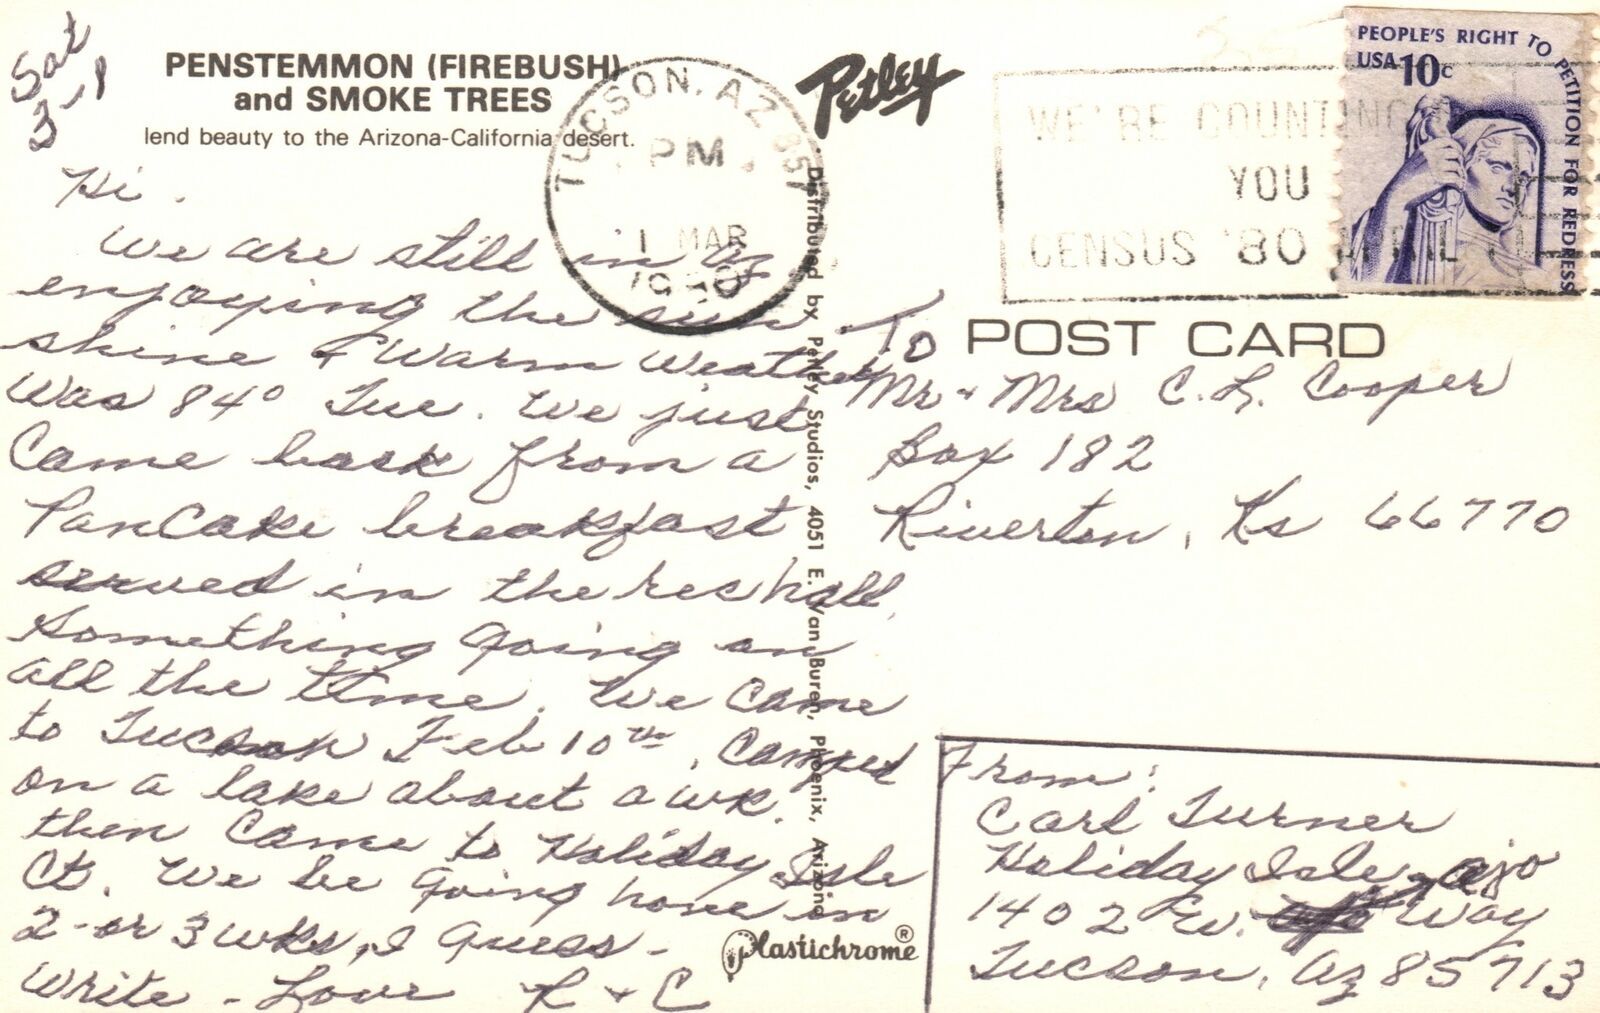 Sat
3-1
PENSTEMMON (FIREBUSH)
and SMOKE TREES
lend beauty to the Arizona-California desert.
Hi.
We are still in az
enjoying the sun
shine & Warm Weather
Was 84° Tue. We just
Came back from a
PanCake breakfast
served in the rec hall.
Something going on
all the time. We Came
to Tucson Feb 10th, Camped
on a lake about a wk.
then Came to Holiday Isle
Ct. We be going home in
2-or 3 wks, I guess-
Write - Love R & C
TUCSON, AZ 857
PM
1 MAR
1980
Petley
Distributed by Petley Studios, 4051 E. Van Buren, Phoenix, Arizona
Plastichrome®
WE'RE COUNTING
YOU
CENSUS '80 APRIL
PEOPLE'S RIGHT TO PETITION FOR REDRESS
USA 10c
POST CARD
To
Mr & Mrs C. L. Cooper
Box 182
Riverton, Ks 66770
From:
Carl Turner
Holiday Isle
1402 W. ajo Way
Tucson, az 85713